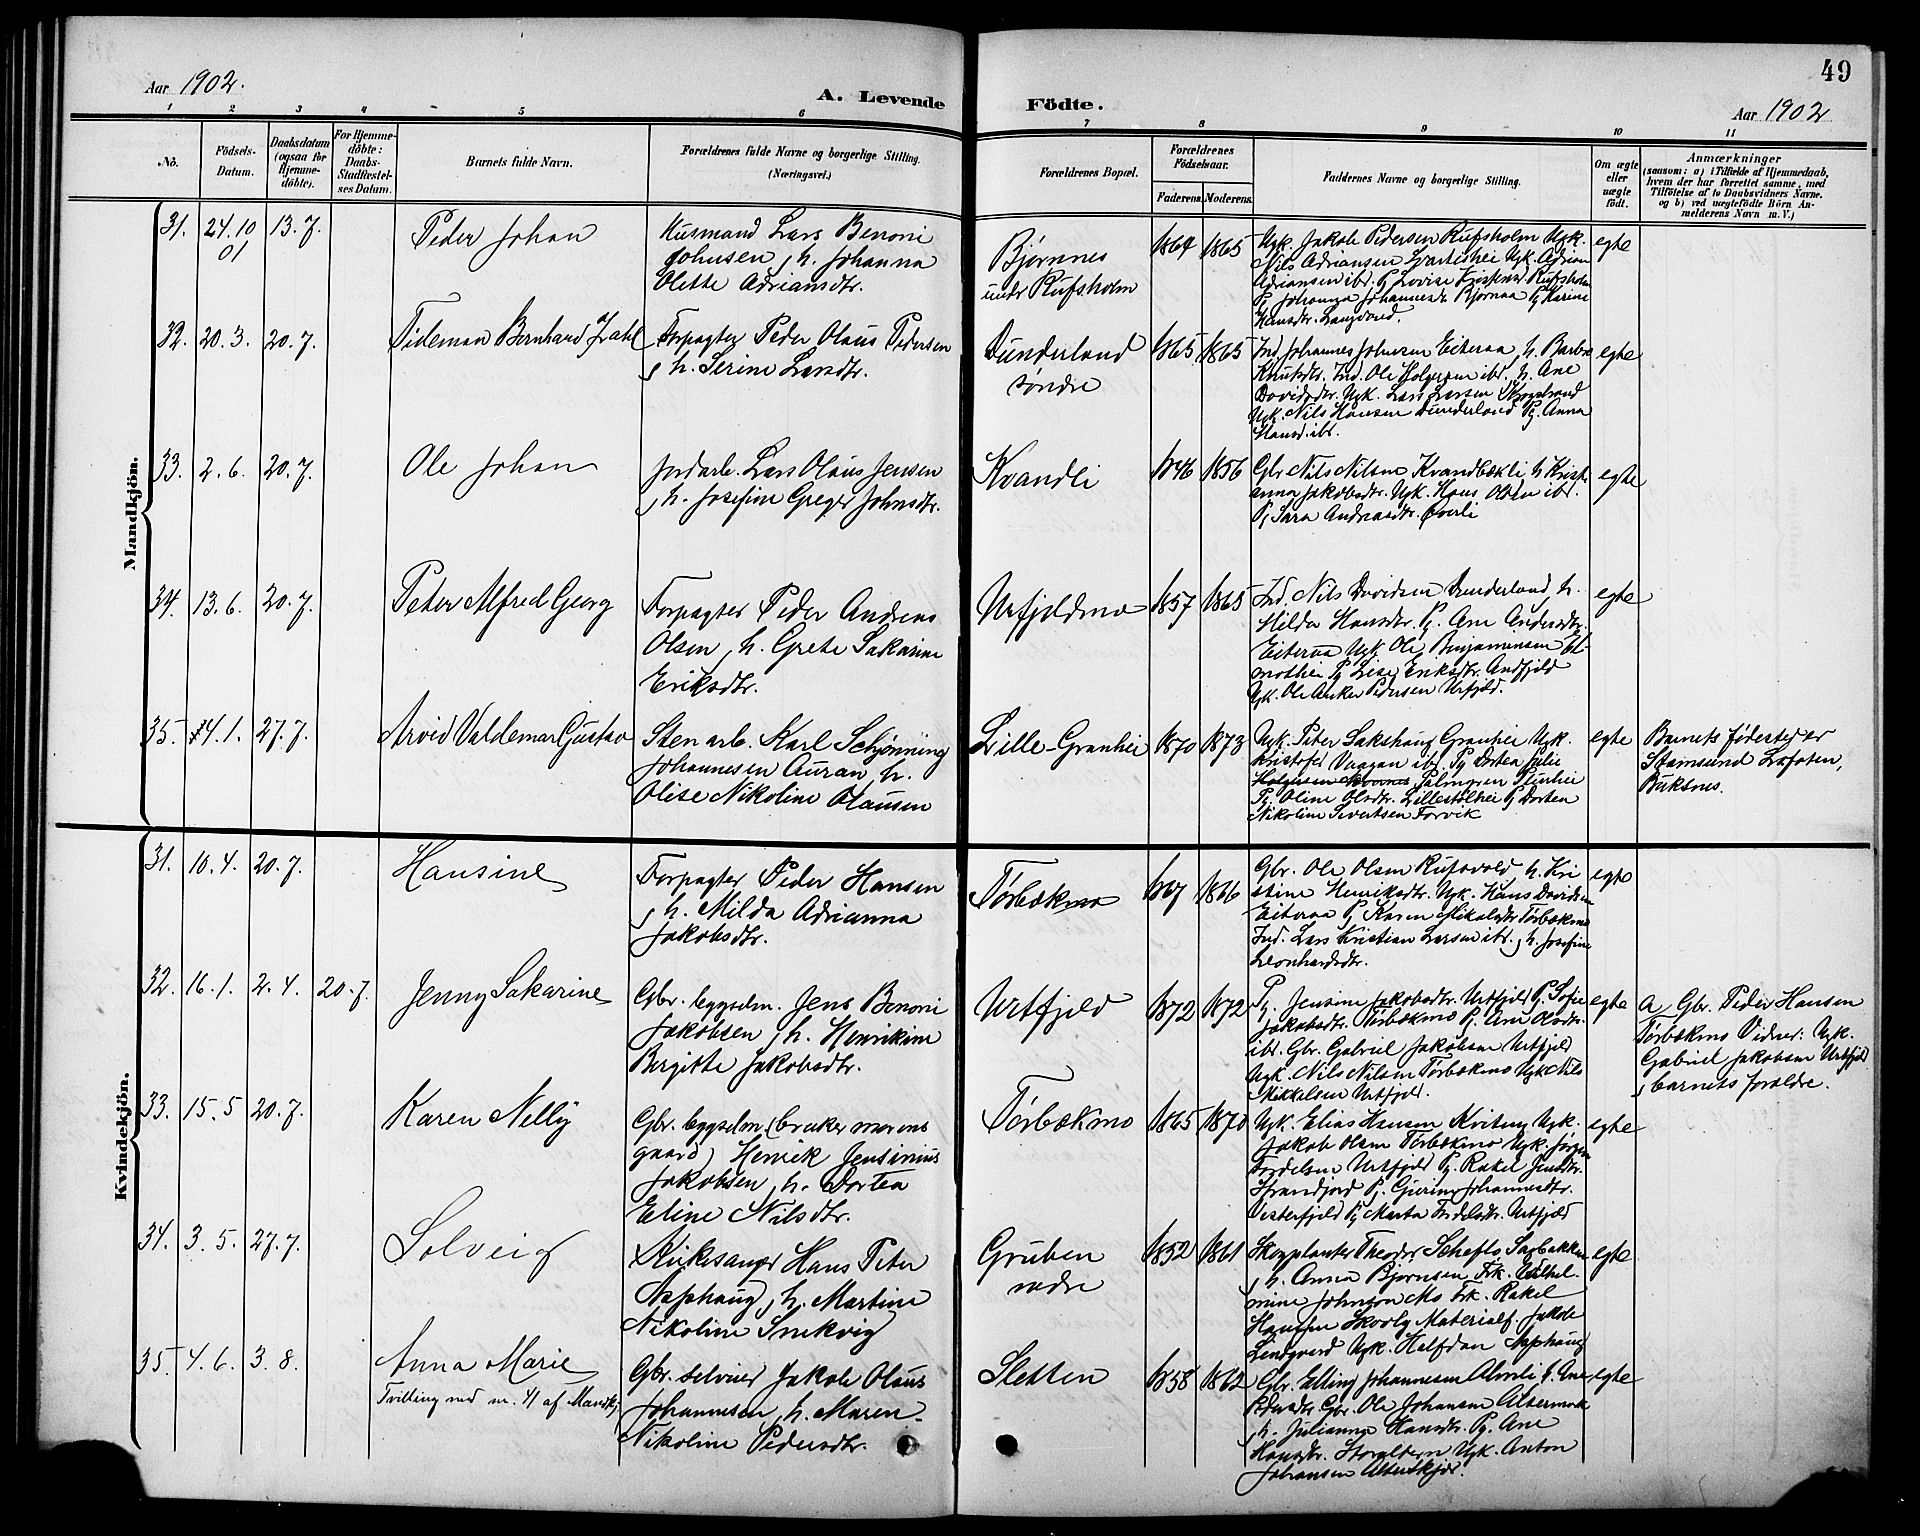 49
Aar 1902.
A. Levende Födte.
Aar 1902
1 2 3 4 5 6 7 8 9 10 11
No.
Födsels-
Datum.
Daabsdatum
(ogsaa for
Hjemme-
döbte).
For Hjemme-
döbte:
Daabs-
Stadfæstel-
ses Datum.
Barnets fulde Navn.
Forældrenes fulde Navne og borgerlige Stilling.
(Næringsvei.)
Forældrenes Bopæl.
Forældrenes
Födselsaar.
Faderens. Moderens.
Faddernes Navne og borgerlige Stilling.
Om ægte
eller
uægte
födt.
Anmærkninger
(saasom: a) i Tilfælde af Hjemmedaab,
hvem der har forrettet samme, med
Tilföielse af to Daabsvidners Navne.
og b) ved uægtefödte Börn An-
melderens Navn m. V.)
Mandkjön.
31. 24.10 01 13.7. Peder Johan
Husmand Lars Benoni
Johnsen, h. Johanna
Olette Adriansdtr.
Bjørnnes
undr Rufsholm
1864 1865
Ugk. Jakob Pedersen Rufsholm Ugk.
Nils Adriansen Svartishei Ugk. Adrian
Adriansen ibd. Pg Lovise Kristensd Rufsholm
Pg Johanna Johannesdtr Bjørnaa Pg Karine
Hansdtr. Langvand.
egte
32. 20.3. 20.7. Tideman Bernhard Zahl
Forpagter Peder Olaus Pedersen
, h. Serine Larsdtr.
Dunderland
søndre
1865 1865
Ind. Johannes Johnsen Eiteraa, h. Barbro
Knutsdtr. Ind. Ole Holgersen ibd. h. Ane
Davidsdtr. Ugk. Lars Larsen Skogstrand
Ugk. Nils Hansen Dunderland Pg. Anna
Hansd. ibd.
egte
33. 2.6. 20.7. Ole Johan
Jordarb. Lars Olaus Jensen
, h. Josefine Greger Johnsdtr.
Kvandli
1846 1856
Gbr. Nils Nilsen Kvandbækli h Kristi
anna Jakobsdtr. Ugk. Hans Olsen ibd.
Pg Sara Andreasdtr. Øverli
egte
34. 13.6. 20.7. Peter Alfred Georg
Forpagter Peder Andreas
Olsen, h. Grete Sakarine
Eriksdtr.
Urfjeldmo
1857 1865
Ind. Nils Davidsen Dunderland, h.
Hilda Hansdtr. Pg. Ane Andersdtr.
Eiteraa Ugk Ole Binjaminsen
mothei Pg Lise Eriksdtr. Andfjeld
Ugk. Ole Anker Pedersen Urfjeld.
egte
35. 4.1. 27.7. Arvid Valdemar Gustav
Stenarb. Karl Schjønning
Johannesen Auran, h.
Olise Nikoline Olausen
Lille-Granhei
1870 1873
Ugk. Peter Sakshaug Granhei Ugk.
Kristofer Vaagan ibd. Pg Dortea Julie
Palmgren Sturhei
Pg Oline Olsdtr. Lillestølhei Pg Dortea
Nikoline Sivertsen Forvik
egte
Barnets fødested er
Stamsund Lofoten,
Buksnes.
Kvindekjön.
31. 10.4. 20.7. Hansine
Forpagter Peder Hansen
, h. Milda Adrianna
Jakobsdtr.
Tørbækmo
1867 1866
Gbr. Ole Olsen Rufsvold, h. Kri
stine Henriksdtr. Ugk. Hans Davidsen
Eiteraa Pg Karen Mikalsdtr Tørbækmo
Ind. Lars Kristian Larsen ibd., h. Josefine
Leonhardsdtr.
egte
32. 16.1. 2.4. 20.7. Jenny Sakarine
Gbr. bygselm. Jens Benoni
Jakobsen, h. Henrikine
Birgitte Jakobsdtr.
Urtfjeld
1872 1872
Pg. Jensine Jakobsdtr. Urtfjeld Pg. Sofie
Jakobsdtr. Tørbækmo Pg. Ane Olsdtr.
ibd. Gbr. Gabriel Jakobsen Urtfjeld
Ugk. Nils Nilsen Tørbækmo Ugk Nils
Mikkelsen Urtfjeld.
egte
A Gbr. Peder Hansen
Tørbækmo Vidner: Ugk.
Gabriel Jakobsen Urtfjeld
, barnets forældre.
33. 15.5 20.7. Karen Nelly
Gbr. bygselm (bruker morens
gaard) Henrik Jensinius
Jakobsen, h. Dortea
Eline Nilsdtr.
Tørbækmo
1865 1870
Ugk. Elias Hansen Kviting Ugk.
Jakob Olsen Tørbækmo Ugk. Jørgen
Fordelsen Urtfjeld Pg. Rakel Jensdtr.
Strandjord Pg. Gjertine Johannesdtr.
Vesterfjeld Pg Marta Fordelsdtr. Urtfjeld
egte
34. 3.5. 27.7. Solveig
Kirkesanger Hans Peter
Asphaug, h. Martine
Nikoline Snekvig
Gruben
nedre
1852 1861
Skogplanter Theodor Schefte Sagbakken
, h. Anna Bjørnsen Frk. Vilhel-
mine Johnson Mo Frk. Rakel
Hansen Skovly Materialf. Jakob
Lindgaard Ugk. Halfdan Asphaug
egte
35. 4.6. 3.8. Anna Marie
Tvilling med nr. 41 af Mandkj.
Gbr. selveier Jakob Olaus
Johannesen, h. Maren-
Nikoline Pedersdtr.
Sletten
1858 1862
Gbr. Elling Johannesen Alterli h. Ane
Pedersdtr. Gbr. Ole Johansen Altermark
, h. Julianna Hansdtr. Pg. Ane
Hansdtr. Storaltern Ugk. Anton
Johansen Alterskjær.
egte